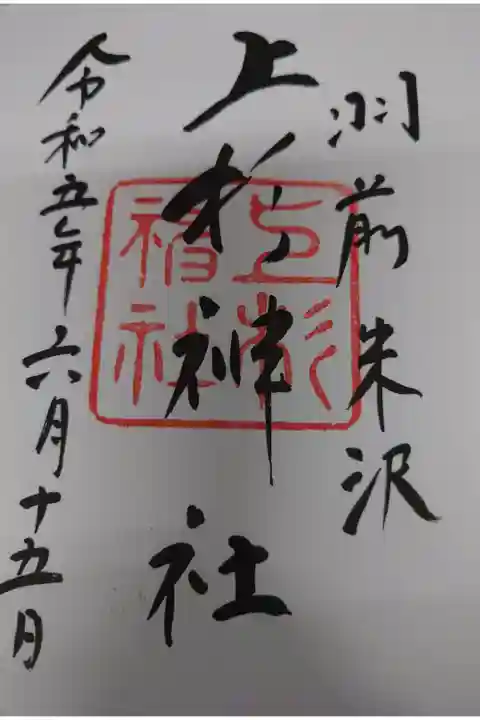 羽前米沢
上杉神社
令和五年六月十五日
上杉
神社